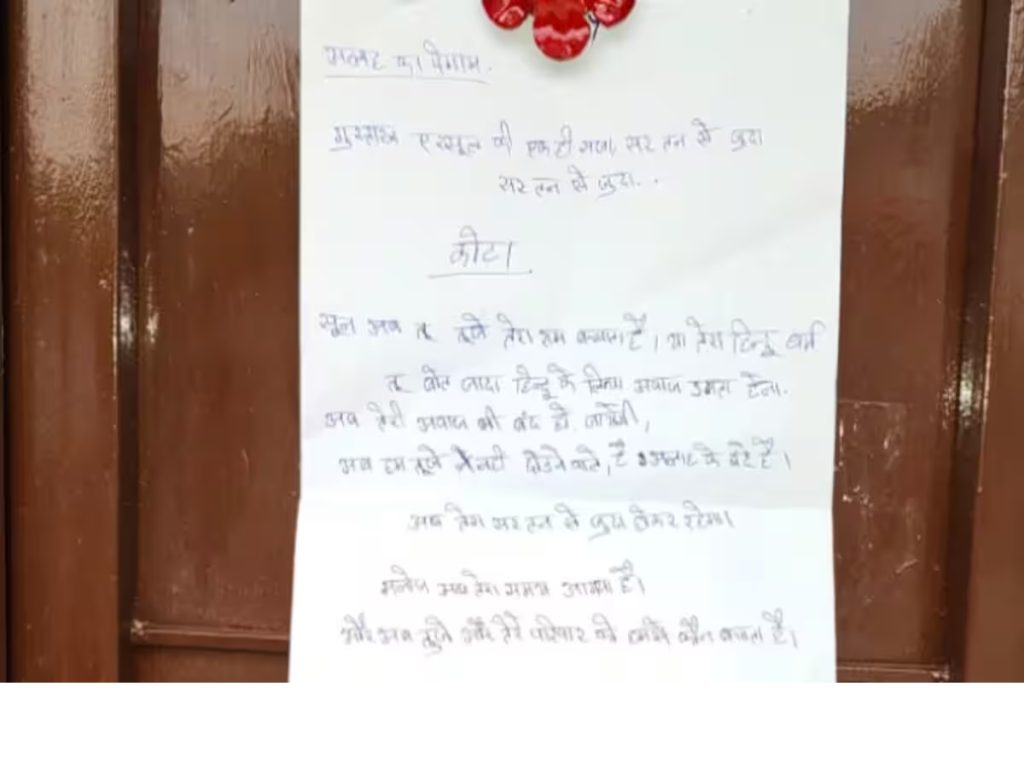 का पैगाम.
गुस्ताख ए रसूल की एक ही सजा, सर तन से जुदा
सर तन से जुदा..
कोटा
अब तू तुझे तेरा राम बचाता है। या तेरा हिन्दू धर्म
तू बोत जादा हिन्दू के लिया अवाज उठाता हैना.
अब तेरी अवाज भी बंद हो जायेगी,
अब हम तुझे नही छोडने वाले, है अल्लाह के बंदे है।
अब तेरा सर तन से जुदा होकर रहेगा।
अब तेरा समय आगया है।
और अब तुझे और तेरे परिवार को हमसे कौन बचाता है।